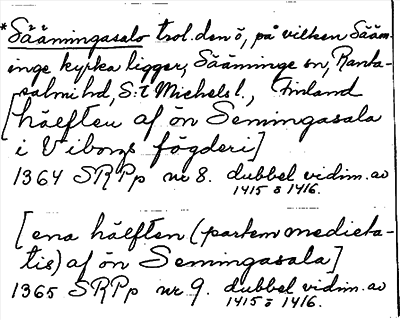 *Säämingasalo trol. den ö, på vilken Sääm-
inge kyrka ligger, Sääminge sn, Ranta-
salmi hd, S:t Michels l., Finland
[hälften af ön Semingasala
i Viborgs fögderi]
1364 SRPp nr 8. dubbel vidim. av
1415 o 1416.
[ena hälften (partem medieta-
tis) af ön Semingasala]
1365 SRPp nr 9. dubbel vidim. av
1415 o 1416.